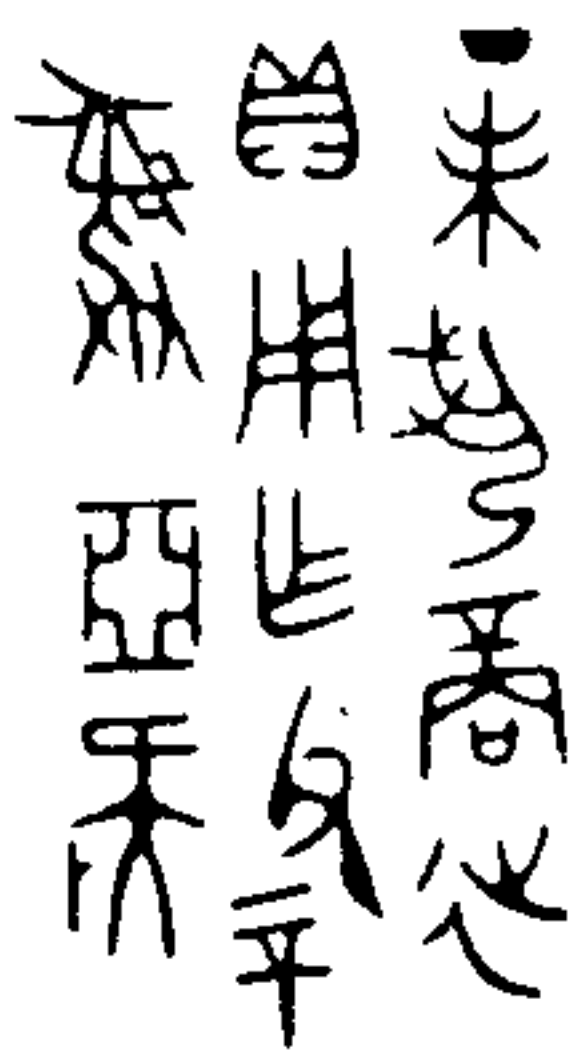 丁未商征
貝用乍父辛
彝亞矣